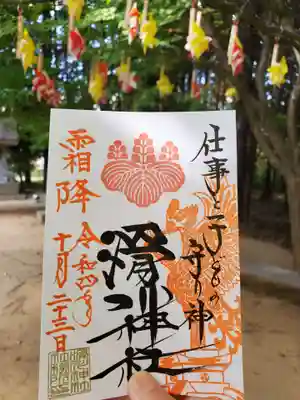 仕事と子どもの
守り神
滑川神社
霜降
令和四年
十月二十三日